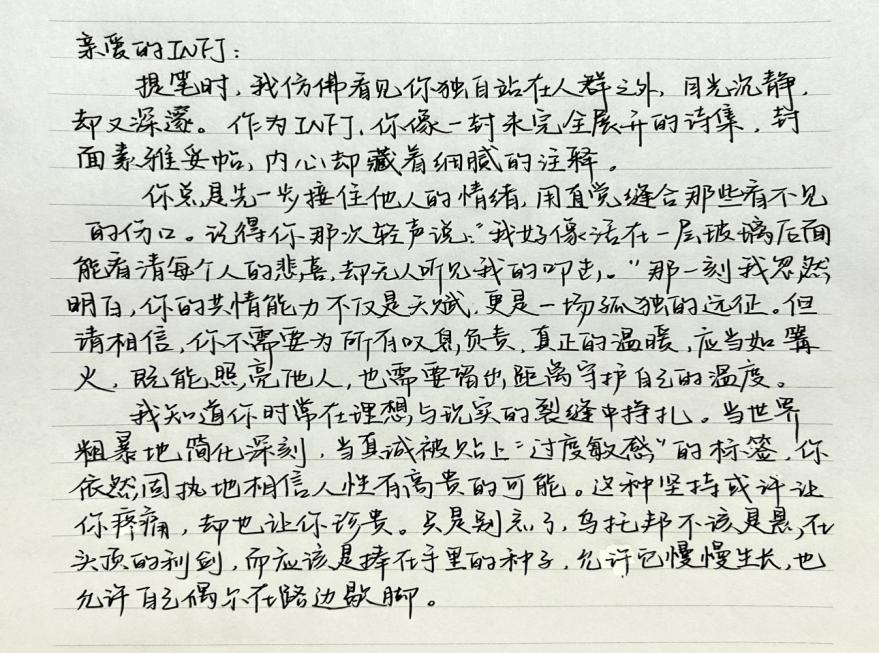 亲爱的INFJ：
提笔时，我仿佛看见你独自站在人群之外，目光沉静，
却又深邃。作为INFJ，你像一封未完全展开的诗集，封
面素雅妥帖，内心却藏着细腻的注释。
你总是先一步接住他人的情绪，用直觉缝合那些看不见
的伤口。记得你那次轻声说：“我好像活在一层玻璃后面
能看清每个人的悲喜，却无人听见我的叩击。”那一刻我忽然
明白，你的共情能力不仅是天赋，更是一场孤独的远征。但
请相信，你不需要为所有叹息负责，真正的温暖，应当如篝
火，既能照亮他人，也需要留出距离守护自己的温度。
我知道你时常在理想与现实的裂缝中挣扎。当世界
粗暴地简化深刻，当真诚被贴上“过度敏感”的标签，你
依然固执地相信人性有高贵的可能。这种坚持或许让
你疼痛，却也让你珍贵。只是别忘了，乌托邦不该是悬在
头顶的利剑，而应该是捧在手里的种子，允许它慢慢生长，也
允许自己偶尔在路边歇脚。